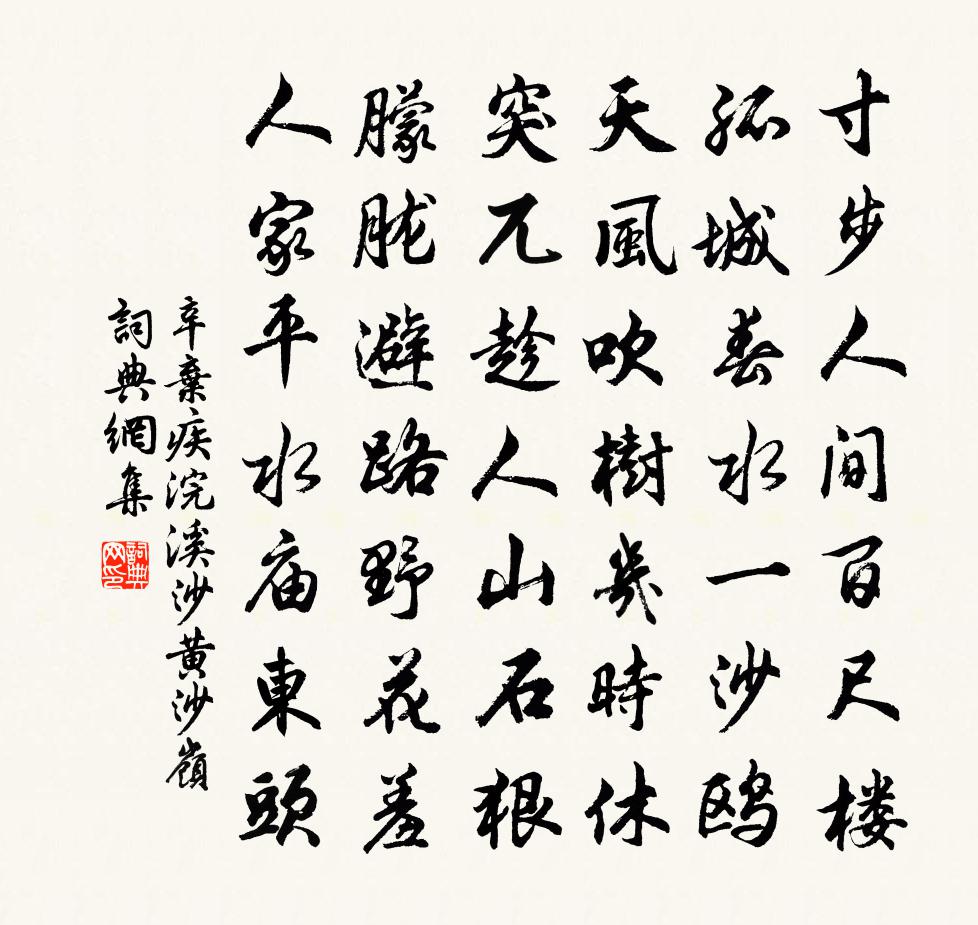 寸步人间百尺楼
孤城春水一沙鸥
天風吹樹幾時休
突兀趁人山石狠
朦胧避路野花羞
人家平水庙東頭
辛棄疾浣溪沙黄沙嶺
詞典網集
詞典网印